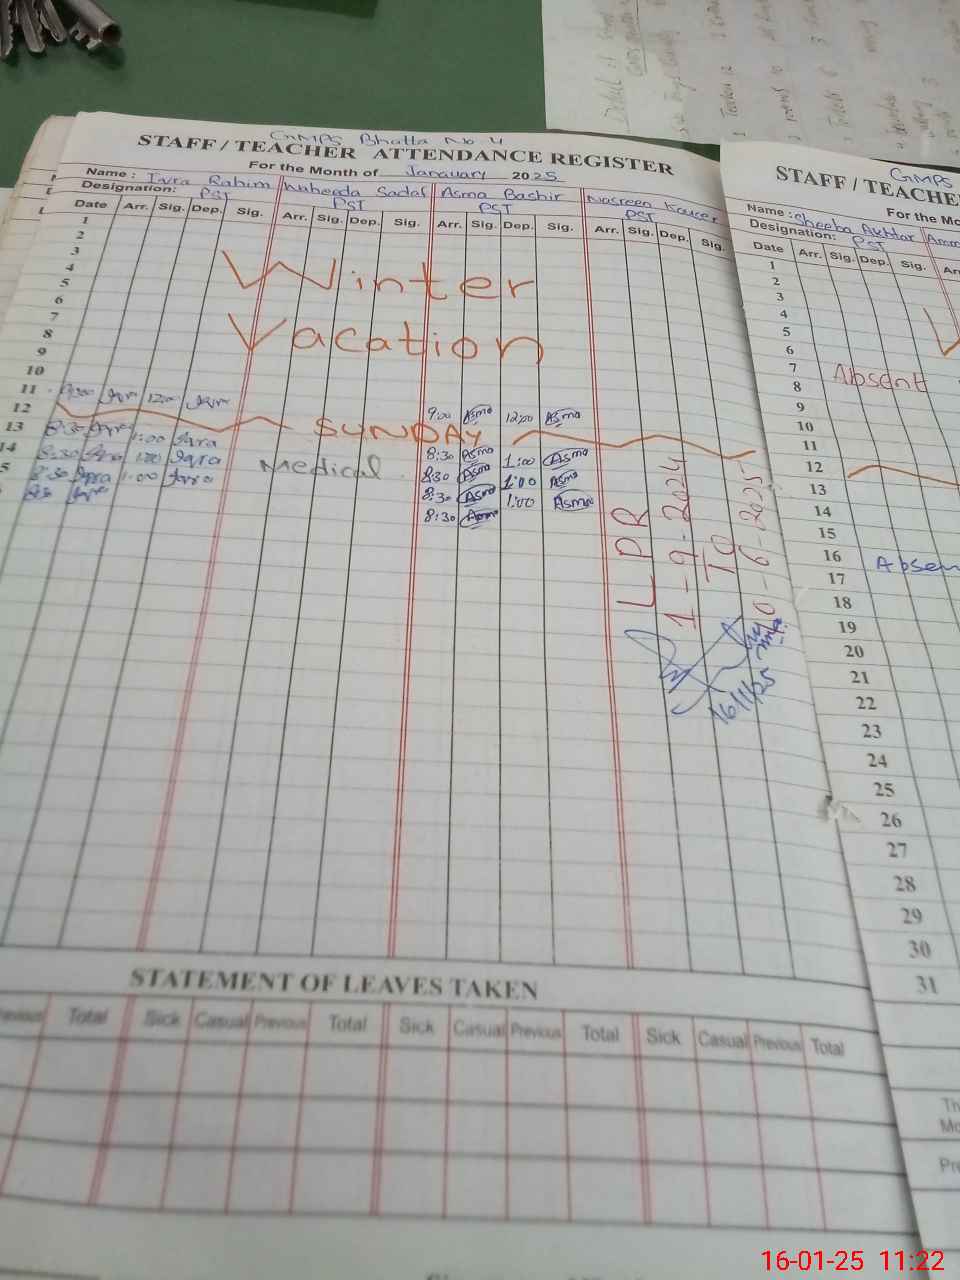 GMPS Bhatta No. 4
STAFF / TEACHER ATTENDANCE REGISTER
For the Month of Janauary 2025
Name : Iqra Rahim Waheeda Sadaf Asma Bashir Nasreen Kauser
Designation: PST PST PST PST
Date Arr. Sig. Dep. Sig. Arr. Sig. Dep. Sig. Arr. Sig. Dep. Sig. Arr. Sig. Dep. Sig.
1
2
3
4
5
6
7
8
9
10
Winter
Vacation
11 Iqra 12:00 Iqra 9:00 Asma 12:00 Asma
12 SUNDAY
13 8:30 Iqra 1:00 Iqra 8:30 Asma 1:00 Asma
14 8:30 Iqra 1:00 Iqra Medical 8:30 Asma 1:00 Asma
5 8:30 Iqra 1:00 Iqra 8:30 Asma 1:00 Asma
Iqra 8:30 Asma
LPR
1-9-2024
TO
0-6-2025
16/1/25
STATEMENT OF LEAVES TAKEN
Previous Total Sick Casual Previous Total Sick Casual Previous Total Sick Casual Previous Total
GMPS
STAFF / TEACHE
For the Mo
Name : Sheeba Akhtar
Designation: PST
Date Arr. Sig. Dep. Sig. Arr
1
2
3
4
5
6
7 Absent
8
9
10
11
12
13
14
15
16 Absen
17
18
19
20
21
22
23
24
25
26
27
28
29
30
31
Th
Mo
Pre
16-01-25 11:22